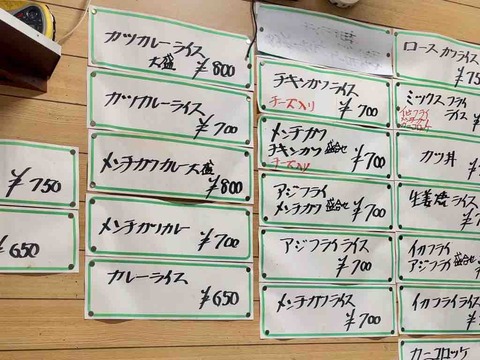 ¥750
¥650
カツカレーライス
大盛 ¥800
カツカレーライス
¥700
メンチカツカレー大盛
¥800
メンチカツカレー
¥700
カレーライス
¥650
チキンカツライス
チーズ入り ¥700
メンチカツ
チキンカツ 盛合せ
チーズ入り ¥700
アジフライ
メンチカツ 盛合せ
¥700
アジフライライス
¥700
メンチカツライス
¥700
ロースカツライス
¥75
ミックスフライ
ライス
カニコロッケ
¥
カツ丼
¥
生姜焼ライス
¥7
イカフライ
アジフライ 盛合せ
¥7
イカフライライス
¥
カニコロッケ